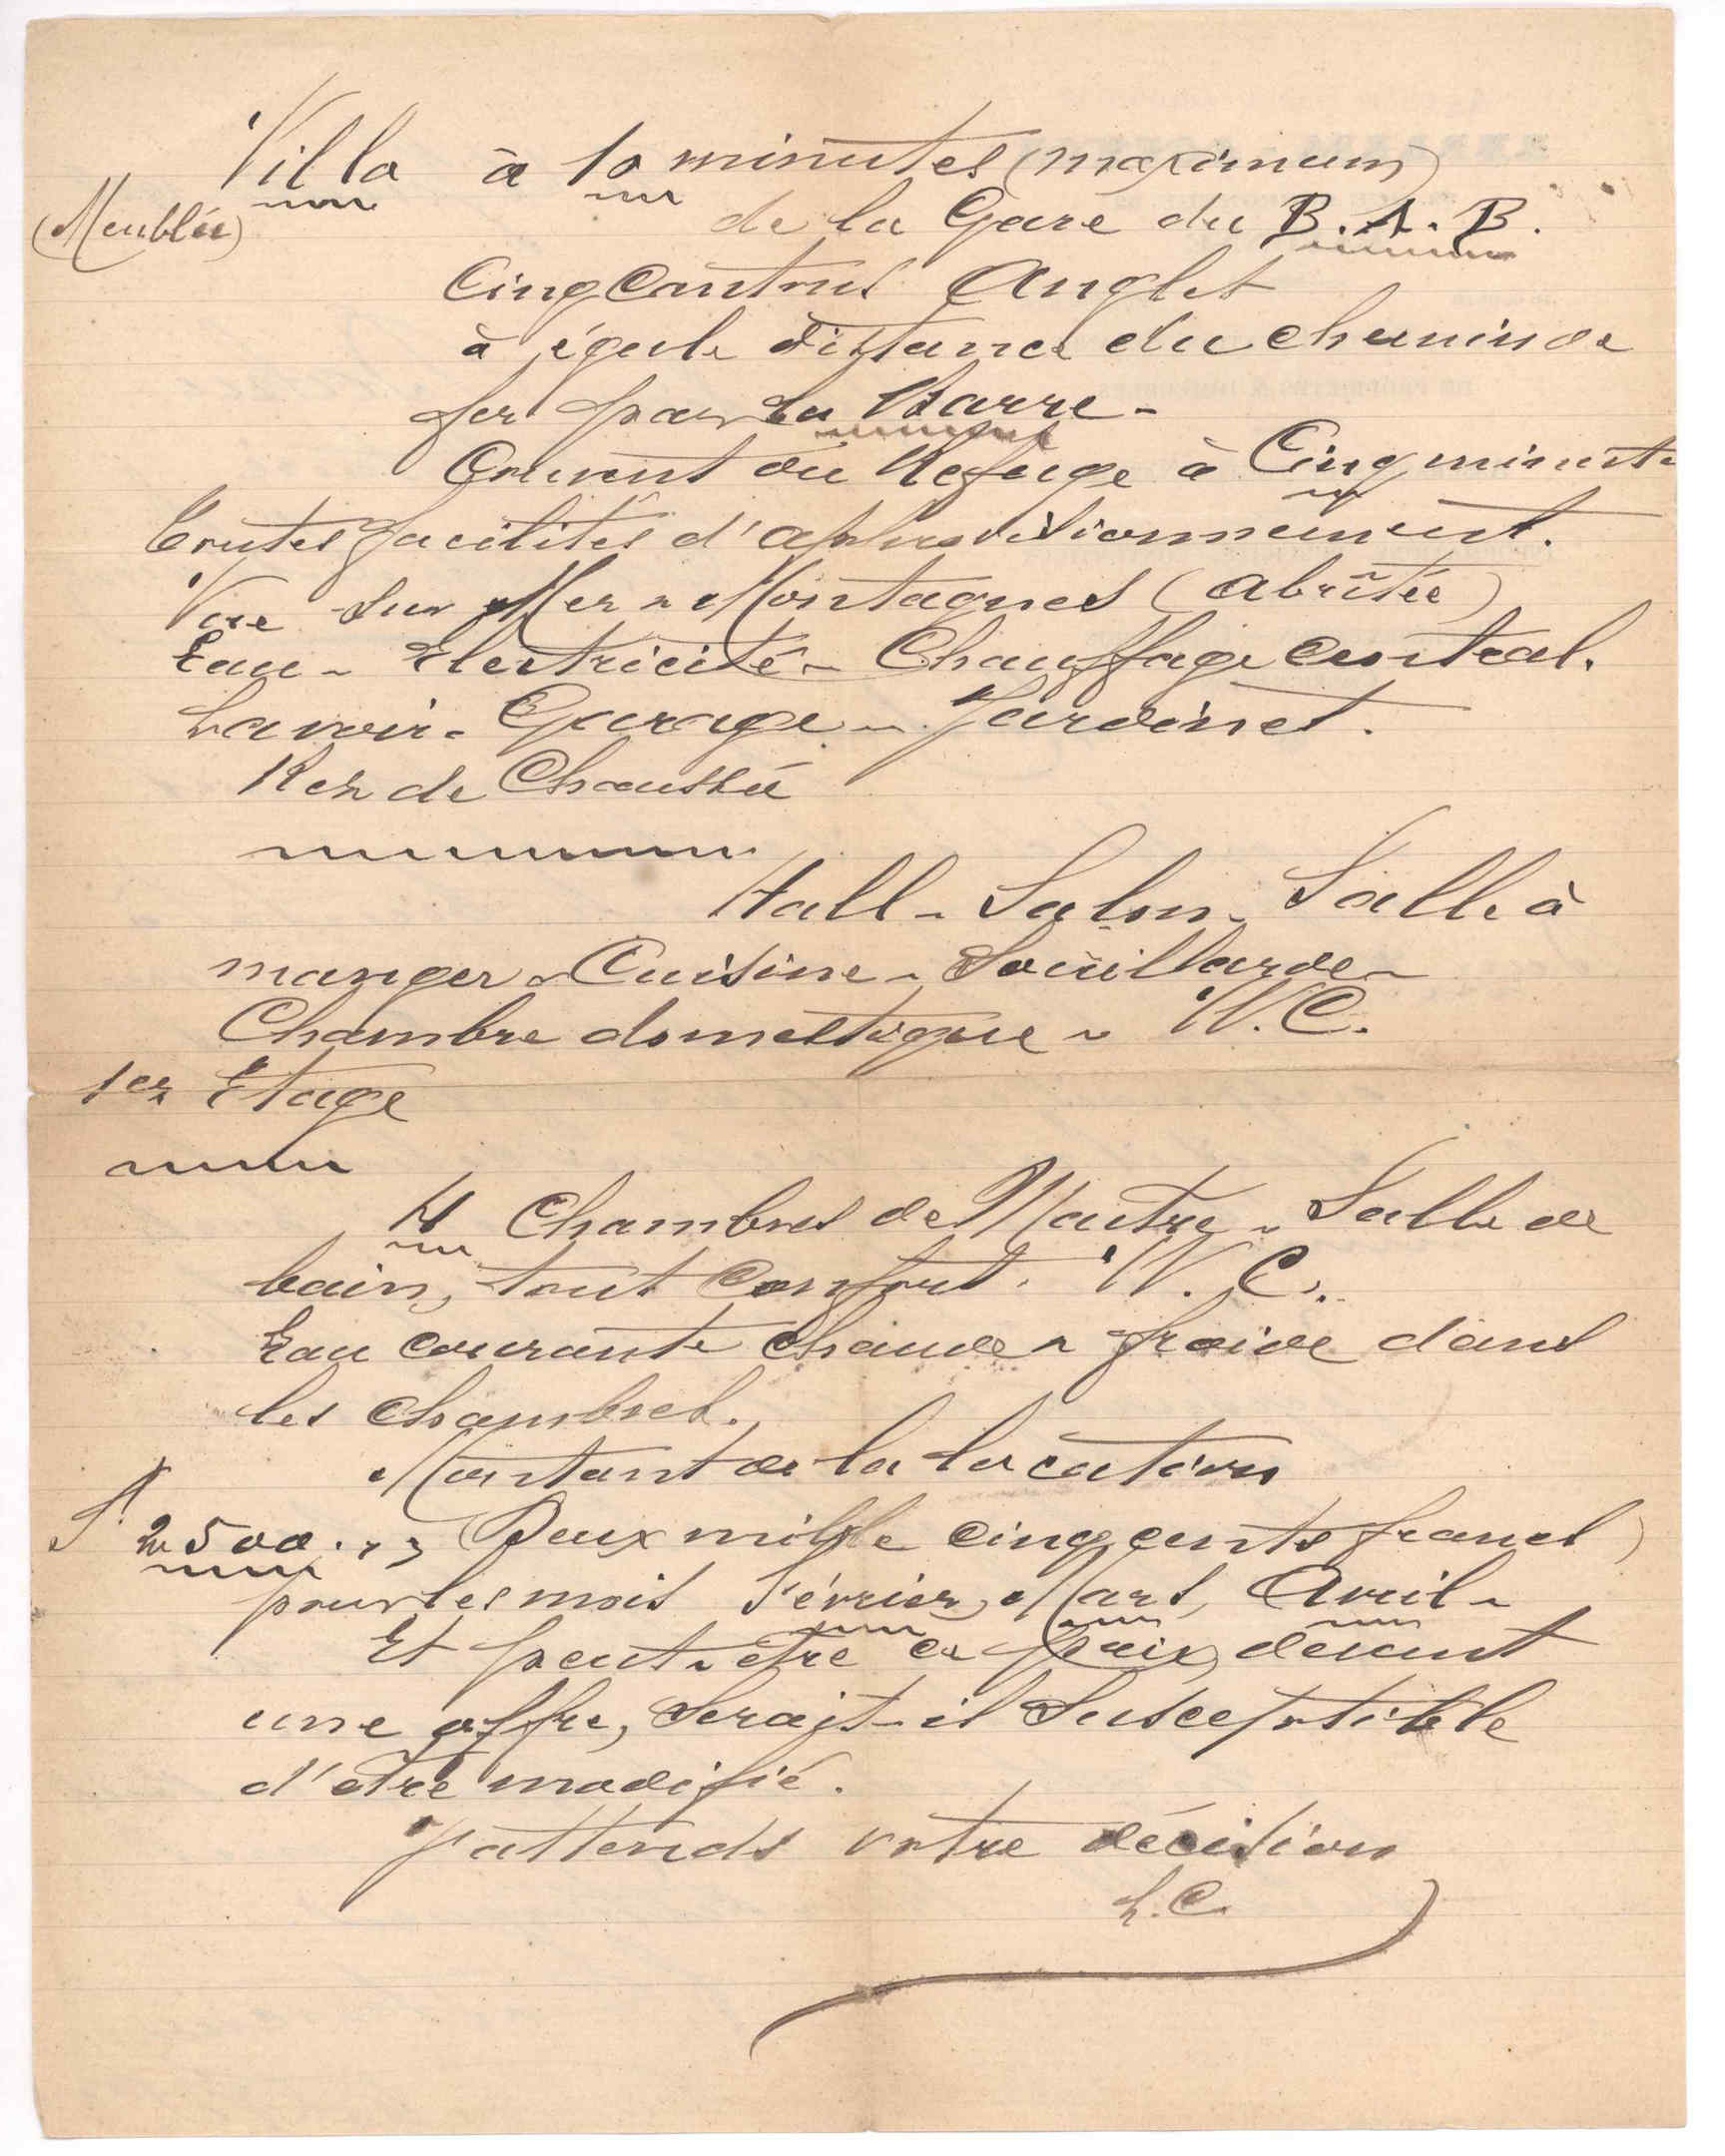 Villa à 10 minutes (maximum)
(Meublée) de la Gare du B.A.B.
Cinq Cantons Anglet
à égale distance du chemin de
fer par la Barre -
Couvent du Refuge à Cinq minute
Toutes facilités d'approvisionnement.
Vue sur Mer - Montagnes (abritée)
Eau - Electricité - Chauffage central.
Lavoir - Garage - Jardinet.
Rez de Chaussée
Hall - Salon - Salle à
manger - Cuisine - Souillarde -
Chambre domestique - W.C.
1er Etage
4 Chambres de Maitre - Salle de
bain, tout confort. W.C.
Eau courante chaude - froide dans
les chambres.
Montant de la location
2500. Deux mille cinq cents francs)
pour les mois Février, Mars, Avril -
Et peut-etre ce prix, devant
une offre, serait-il susceptible
d'etre modifié.
J'attends votre décision
L.C.